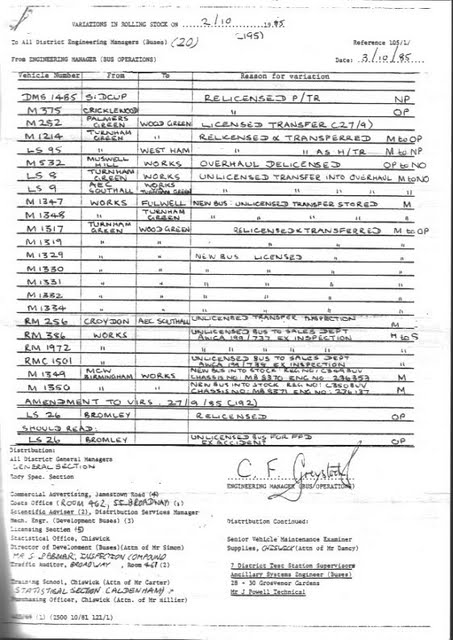 VARIATIONS IN ROLLING STOCK ON 2/10 1985
(195)
To All District Engineering Managers (Buses) (20) Reference 105/1/
From ENGINEERING MANAGER (BUS OPERATIONS) Date: 3/10/85
Vehicle Number From To Reason for variation
DMS 1485 SIDCUP RELICENSED P/TR NP
M 375 CRICKLEWOOD " OP
M 252 PALMERS GREEN WOOD GREEN LICENSED TRANSFER (27/9)
M 1214 TURNHAM GREEN " RELICENSED & TRANSFERRED M to OP
LS 95 " WEST HAM " " AS H/TR M to NP
M 532 MUSWELL HILL WORKS OVERHAUL DELICENSED OP to NO
LS 8 TURNHAM GREEN WORKS UNLICENSED TRANSFER INTO OVERHAUL M to NO
LS 9 AEC SOUTHALL WORKS " " " "
M 1347 WORKS FULWELL NEW BUS: UNLICENSED TRANSFER STORED M
M 1348 " TURNHAM GREEN " " " "
M 1317 TURNHAM GREEN WOOD GREEN RELICENSED & TRANSFERRED M to OP
M 1319 " " " " "
M 1329 " " NEW BUS LICENSED " "
M 1330 " " " " "
M 1331 " " " " "
M 1332 " " " " "
M 1334 " " " " "
RM 256 CROYDON AEC SOUTHALL UNLICENSED TRANSFER INSPECTION M
RM 386 WORKS UNLICENSED BUS TO SALES DEPT
EX INSPECTION
RM 1972 " " " " "
RMC 1501 " UNLICENSED BUS TO SALES DEPT
EX INSPECTION "
M 1349 MCW BIRMINGHAM WORKS NEW BUS INTO STOCK REG NO: C349 BUV
CHASSIS NO: MB 8370 ENG NO: M
M 1350 " " NEW BUS INTO STOCK REG NO: C350 BUV
CHASSIS NO: MB 8371 ENG NO: M
AMENDMENT TO VIRS. 27/9/85 (192)
LS 26 BROMLEY RELICENSED OP
SHOULD READ:
LS 26 BROMLEY UNLICENSED BUS FOR FFD
EX ACCIDENT OP
Distribution:
All District General Managers
GENERAL SECTION
Tory Spec. Section
C. F.
ENGINEERING MANAGER (BUS/OPERATIONS)
Commercial Advertising, Jamestown Road (4)
Costs Office (ROOM 462, 55 BROADWAY) (1)
Scientific Adviser (2), Distribution Services Manager
Mech. Engr. (Development Buses) (3)
Licensing Section
Statistical Office, Chiswick
Director of Development (Buses)(Attn of Mr Simon)
INSPECTION COMPOUND
Traffic Auditor, BROADWAY, ROOM 467 (2)
Training School, Chiswick (Attn of Mr Carter)
STATISTICAL SECTION (ALDENHAM)
Purchasing Officer, Chiswick (Attn. of Mr Hillier)
(1) (2500 10/81 121/1)
Distribution Continued:
Senior Vehicle Maintenance Examiner
Supplies, CHISWICK (Attn of Mr Dancy)
7 District Test Station Supervisors
Ancillary Systems Engineer (Buses)
28 - 50 Grosvenor Gardens
Mr J Powell Technical